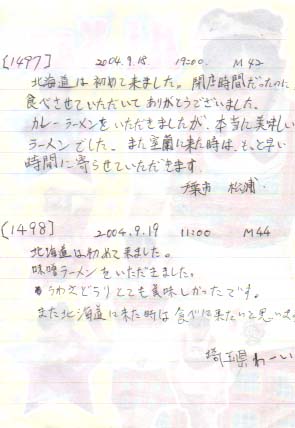 [1497] 2004.9.18 19:00 M42
北海道は初めて来ました。閉店時間だったのに
食べさせていただいてありがとうございました。
カレーラーメンをいただきましたが、本当に美味しい
ラーメンでした。また室蘭に来た時は、もっと早い
時間に寄らせていただきます。
千葉市 松浦
[1498] 2004.9.19 11:00 M44
北海道は初めて来ました。
味噌ラーメンをいただきました。
うわさどうりとても美味しかったです。
また北海道に来た時は食べに来たいと思いま
埼玉県 わーい